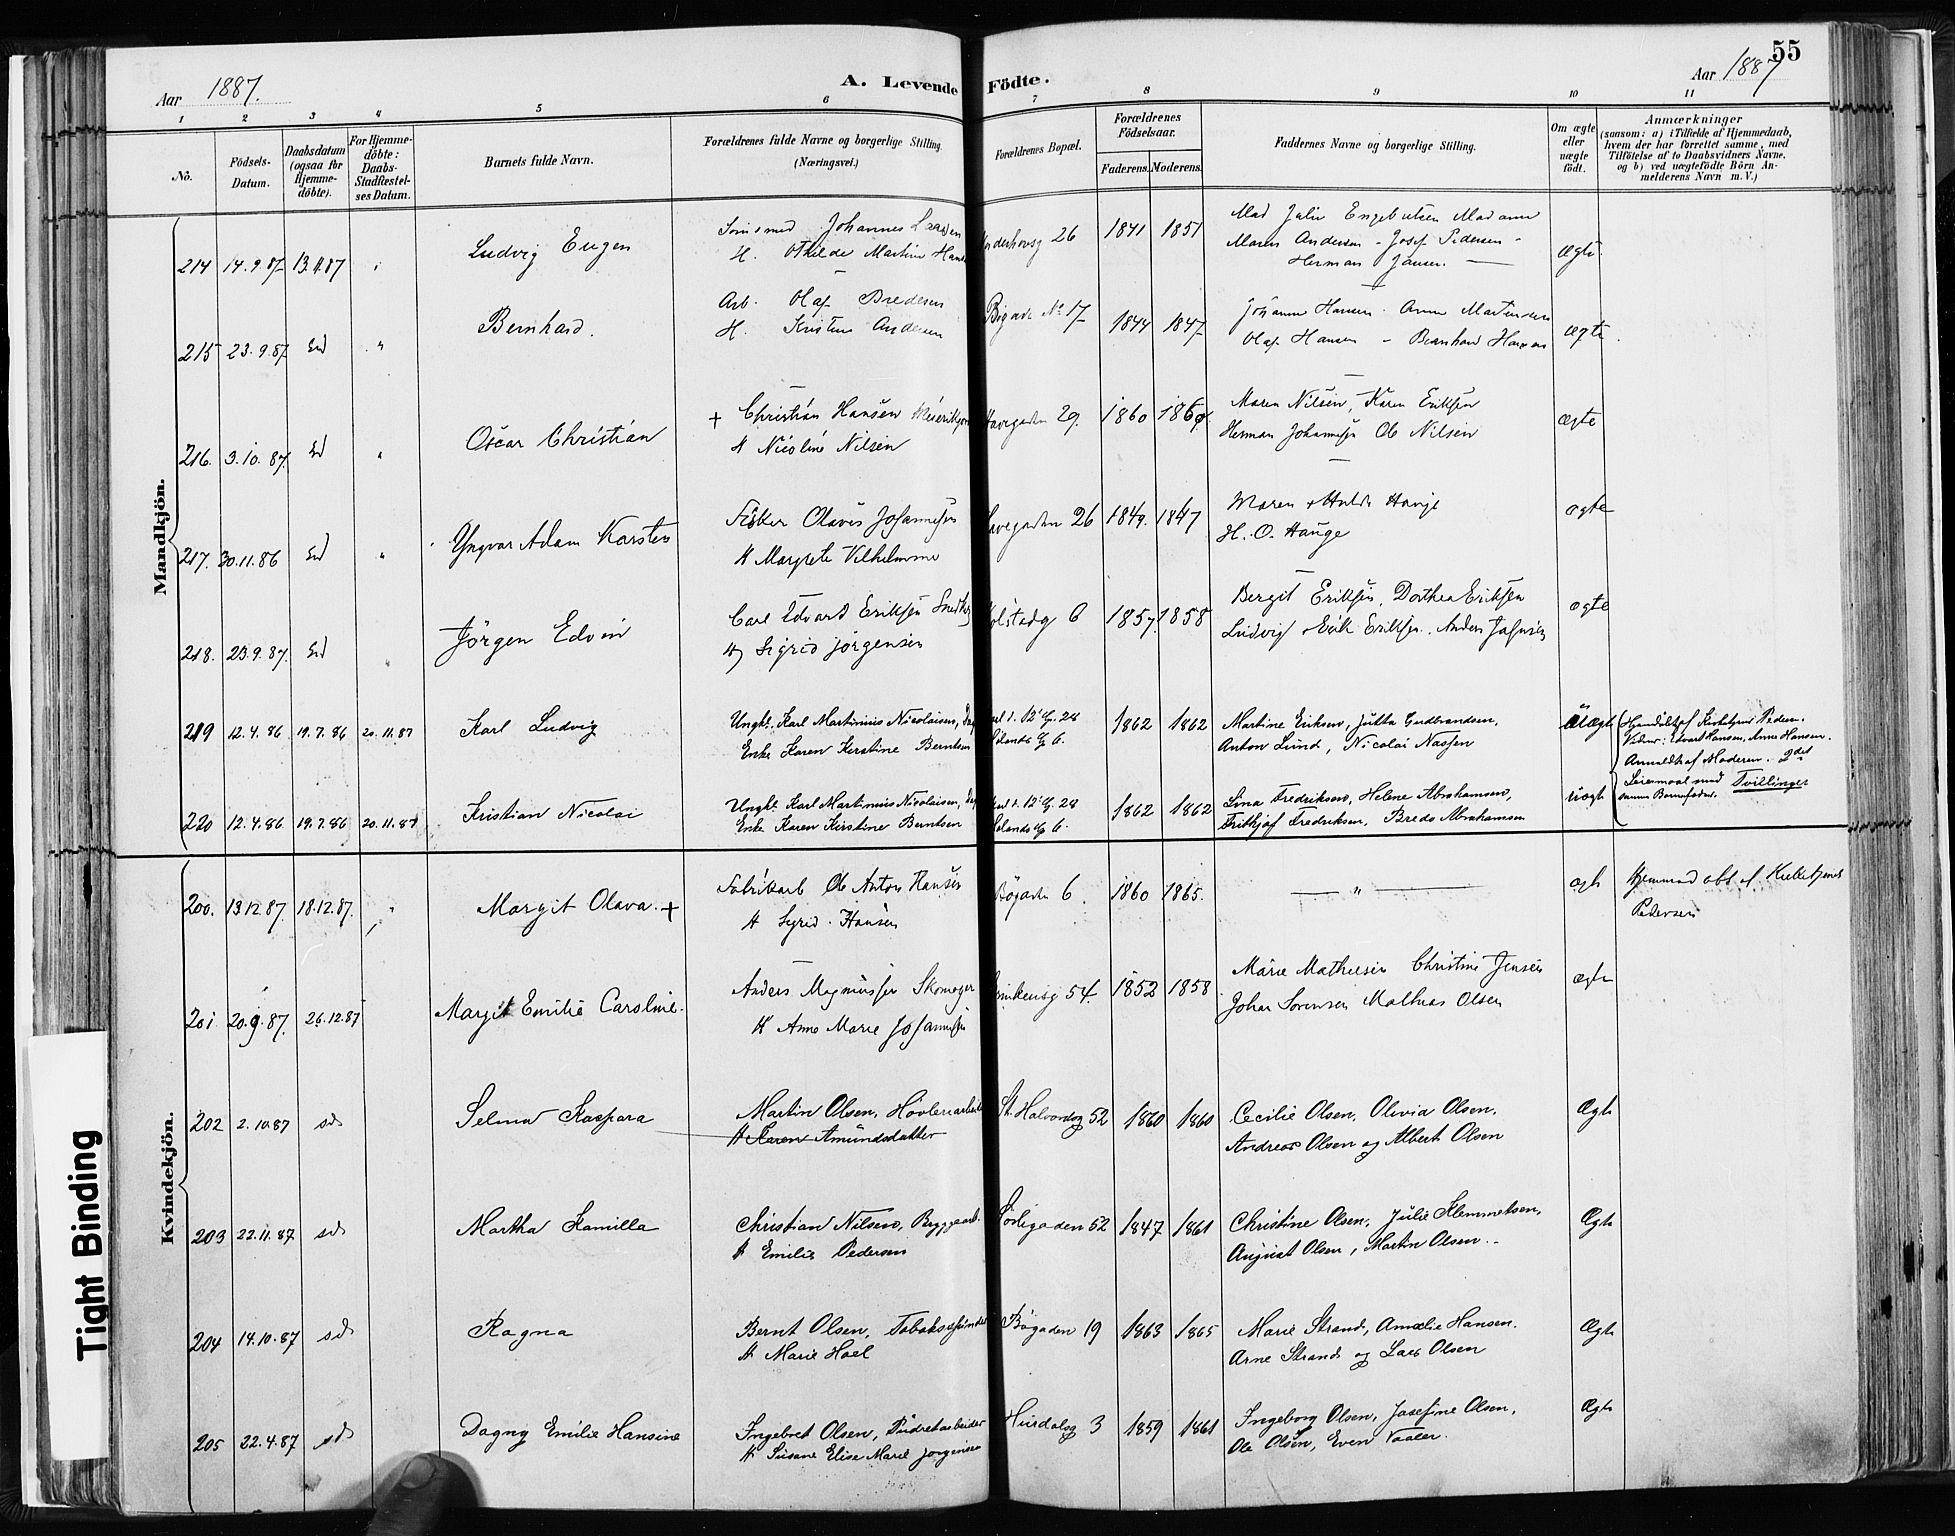 55
Aar 1887.
A. Levende Födte.
Aar 1887
1 2 3 4 5 6 7 8 9 10 11
No.
Födsels-Datum.
Daabsdatum (ogsaa for Hjemme-döbte).
For Hjemme-döbte: Daabs-Stadfæstel-ses Datum.
Barnets fulde Navn.
Forældrenes fulde Navne og borgerlige Stilling. (Næringsvei.)
Forældrenes Bopæl.
Forældrenes Födselsaar.
Faderens. Moderens.
Faddernes Navne og borgerlige Stilling.
Om ægte eller uægte födt.
Anmærkninger
(saasom: a) i Tilfælde af Hjemmedaab,
hvem der har forrettet samme, med
Tilföielse af to Daabsvidners Navne,
og b) ved uægtefödte Börn An-
melderens Navn m. V.)
Mandkjön.
214 14.9.87 13.11.87 Ludvig Eugen
Johannes
H. Othilde Martine
26 1841 1851
Mad Julie Engebretsen Madame
Maren Andersen - Josef Pedersen -
Herman Jansen.
Ægte
215 23.9.87 Sd " Bernhard.
Arb. Olaf Bredesen
H. Kristine Andersen
No 17 1844 1847
Johanne Hansen. Anne
Olaf Hansen - Bernhard Hansen
Ægte
216. 3.10.87. Sd " Oscar Christian
+ Christian Hansen
H Nicoline Nilsen
29. 1860
Maren Nilsen, Karen Eriksen
Herman Johannesen Ole Nilsen
Ægte
217. 30.11.86 Sd " Yngvar Adam Karsten
Fisker Olaves Johannesen
H Margrete Vilhelmine
26 1849. 1847
Maren + Hulda Hauge
H. O. Hauge
ægte
218. 23.9.87. Sd " Jörgen Edvin
Carl Edvard Eriksen
H Sigrid Jörgensen
6 1857. 1858
Bergit Eriksen, Dorthea Eriksen
Ludvig + Erik Eriksen. Anders
ægte
219 12.4.86 19.7.86 20.11.87 Karl Ludvig
Ungk. Karl Martinius Nicolaisen,
Enke Karen Kirstine Berntsen
1862 1862
Martine Eriksen, Jutta Gudbrandsen,
Anton Lund, Nicolai Nassen
Uægte
Hjemdöbt af Kirketjener Pedersen.
Vidner: Edvart Hansen, Anne Hansen.
Anmeldt af Moderen. 2det
Leiermaal med Tvillinger
samme Barnefader.
220 12.4.86 19.7.86 20.11.87 Kristian Nicolai
Ungk. Karl Martinius Nicolaisen,
Enke Karen Kirstine Berntsen
1862 1862
Lina Fredriksen, Helene Abrahamsen,
Frithjof Fredriksen, Brede Abrahamsen
uægte
Kvindekjön.
200. 13.12.87. 18.12.87. " Margit Olava. +
Fabrikarb Ole Anton Hansen
H Sigrid Hansen
Bøgaden 6. 1860 1865.
"
ægte
Hjemmed öbt af Kirketjener
Pedersen
201 20.9.87. 26.12.87 Margit Emilie Caroline.
Anders Magnussen Skomager
H Anne Marie Johannesen
54. 1852 1858
Marie Mathiesen Christine Jensen
Johan Sorensen Mathias Olsen
Ægte
202 2.10.87 sd Selma Kaspara
Martin Olsen, Høvleriarbeider
H Karen Amundsdatter
St. Halvardsg 52 1860 1860
Cecilie Olsen, Olivia Olsen,
Andreas Olsen og Albert Olsen
Ægte
203 22.11.87 sd Martha Kamilla
Christian Nilsen, Bryggearb.
H Emilie Pedersen
Sörligaden 52 1847 1861
Christine Olsen, Julie Klemmetsen,
August Olsen, Martin Olsen.
Ægte
204 14.10.87 sd Ragna
Bernt Olsen, Tobaksspinder
H Marie Hoel
Bøgaden 19 1863 1865
Marie Strand, Amalie Hansen.
Arne Strand og Lars Olsen
Ægte
205 22.4.87 sd Dagny Emilie Hansine
Ingebret Olsen, Pudretarbeider
H Susane Elise Marie Jörgensen
Hurdalsg 3 1859 1861
Ingeborg Olsen, Josefine Olsen,
Ole Olsen, Even Vaaler.
Ægte
Tight Binding